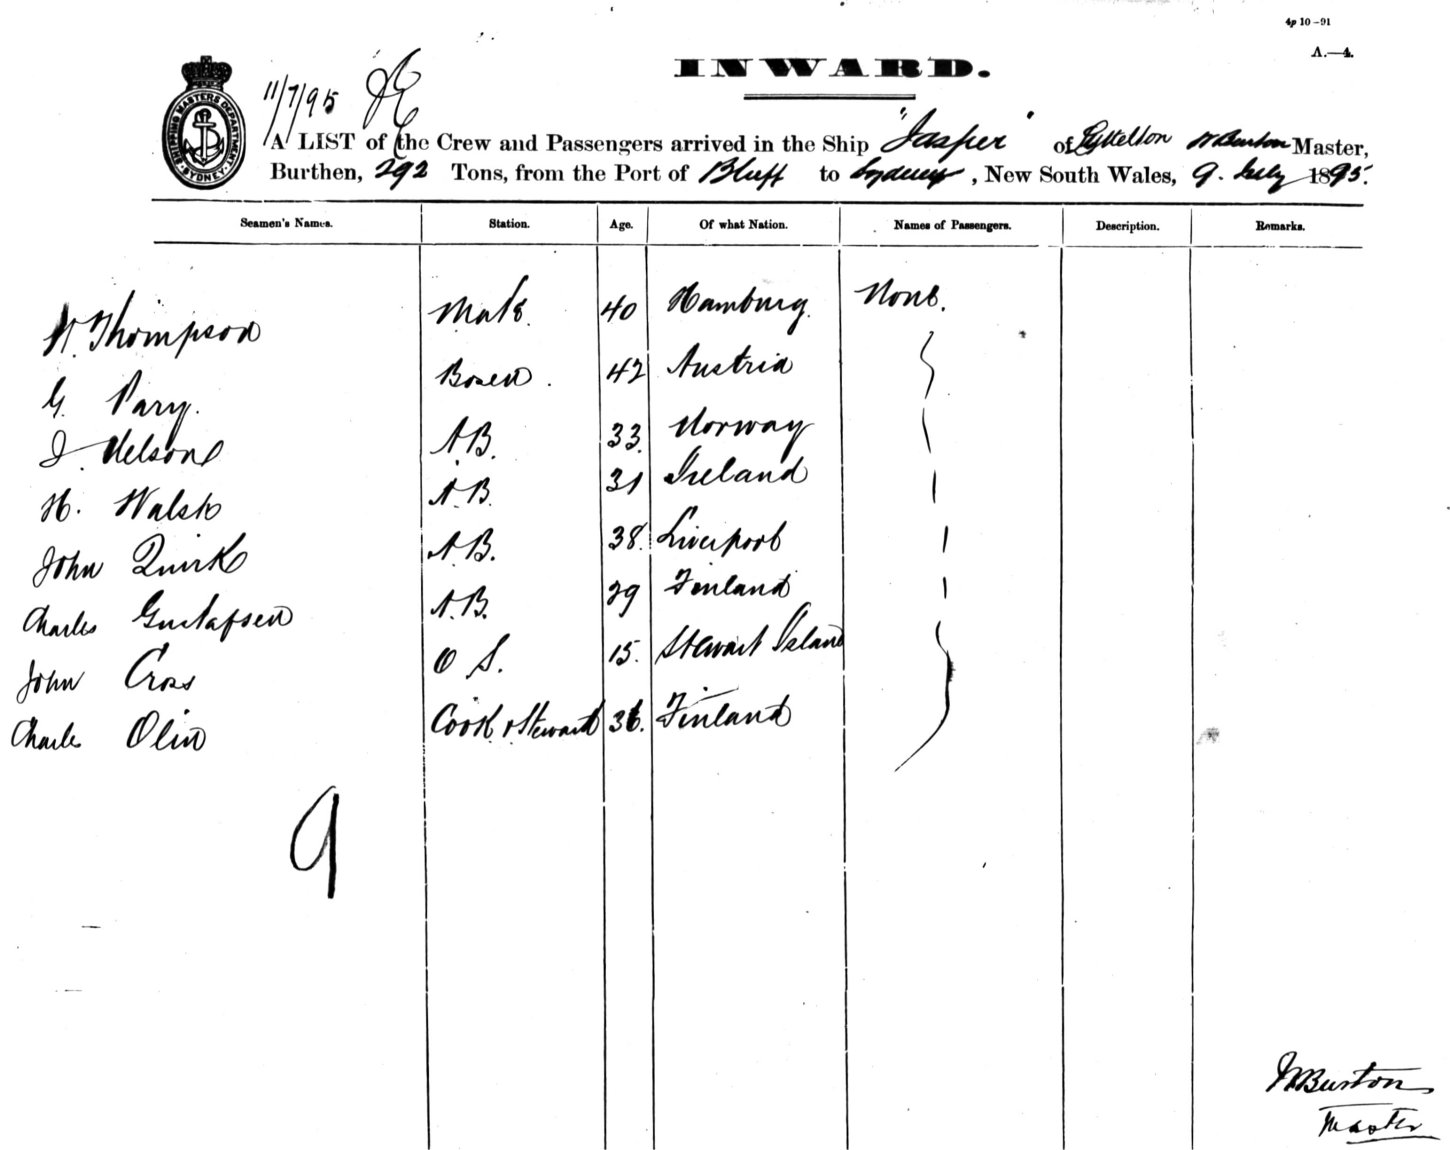 4p 10-91
A.—4.
INWARD.
11/7/95
SHIPPING MASTERS DEPARTMENT SYDNEY
A LIST of the Crew and Passengers arrived in the Ship "Jasper" of Lyttelton W Burton Master,
Burthen, 292 Tons, from the Port of Bluff to Sydney, New South Wales, 9. July 1895.
Seamen's Names. Station. Age. Of what Nation. Names of Passengers. Description. Remarks.
W. Thompson Mate. 40 Hamburg. None.
G. Pary. Bosen. 42 Austria
J. Nelson A.B. 33. Norway
H. Walsh A.B. 31 Ireland
John Quirk A.B. 38. Liverpool
Charles Gustafsen A.B. 29 Finland
John Cross O S. 15. Stewart Island
Charles Olin Cook & Steward 36. Finland
9
W Burton
Master